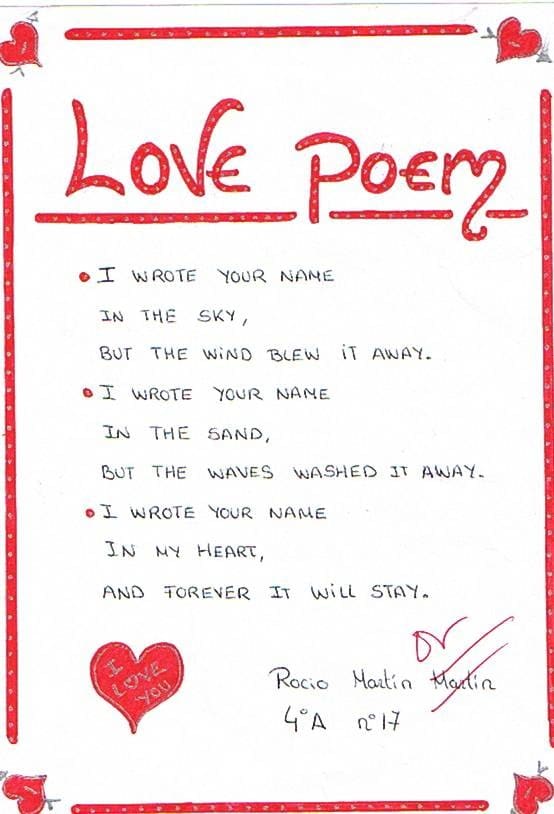 LOVE POEM
• I WROTE YOUR NAME
IN THE SKY,
BUT THE WIND BLEW IT AWAY.
• I WROTE YOUR NAME
IN THE SAND,
BUT THE WAVES WASHED IT AWAY.
• I WROTE YOUR NAME
IN MY HEART,
AND FOREVER IT WILL STAY.
I LOVE YOU
Rocio Martin Martin
4°A n°17